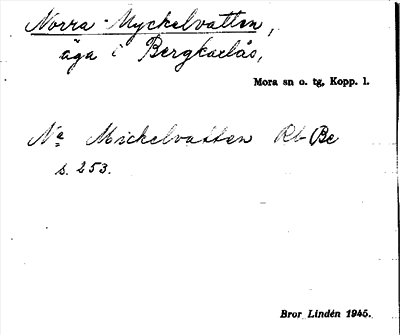 Norra Myckelvatten,
äga i Bergkarlås,
Mora sn o. tg, Kopp. l.
Na Mickelvatten Rt Be
s. 253.
Bror Lindén 1945.